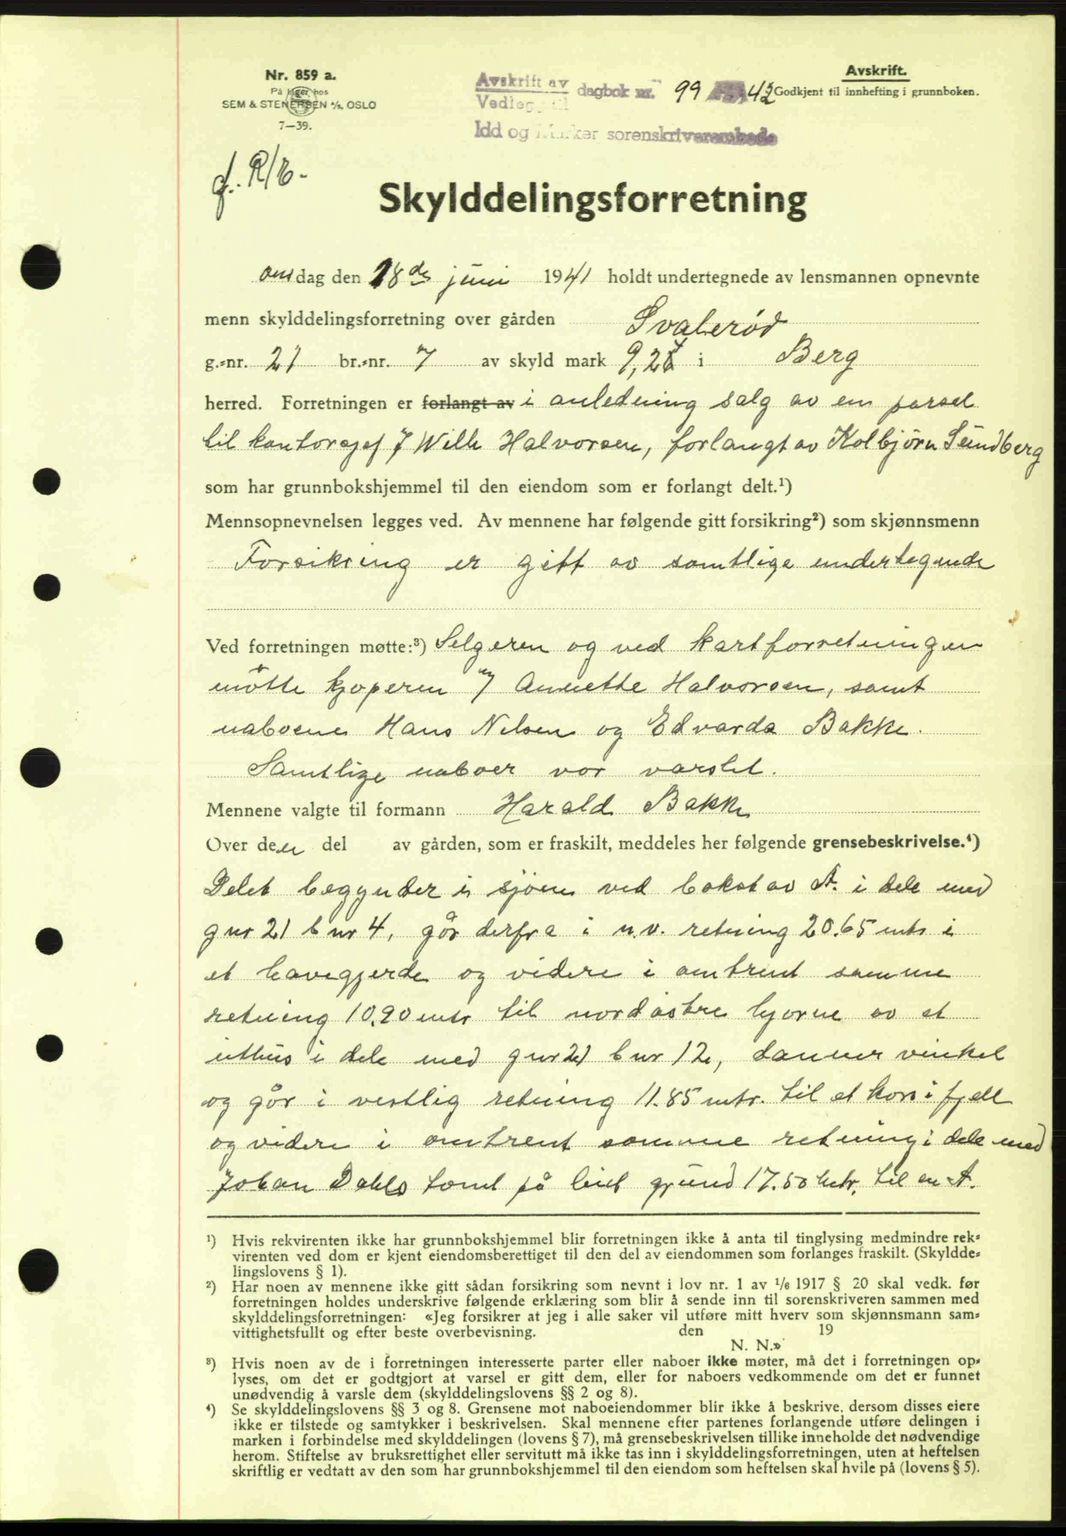 Nr. 859 a.
På lager hos
SEM & STENERSEN A/S, OSLO
7—39.
Avskrift av
Vedlegg til
dagbok nr. 99 1942
Idd og Marker sorenskriverembede
Avskrift.
Godkjent til innhefting i grunnboken.
Skylddelingsforretning
onsdag den 18de juni 1941 holdt undertegnede av lensmannen opnevnte
menn skylddelingsforretning over gården Svalerød
g.-nr. 21 br.-nr. 7 av skyld mark 9,27 i Berg
herred. Forretningen er forlangt av i anledning salg av en parsel
til kontorsjef Wille Halvorsen, forlangt av Kolbjørn Sundberg
som har grunnbokshjemmel til den eiendom som er forlangt delt.¹)
Mennsopnevnelsen legges ved. Av mennene har følgende gitt forsikring²) som skjønnsmenn
Forsikring er gitt av samtlige undertegnede
Ved forretningen møtte:³) Selgeren og ved kartforretningen
møtte kjøperen Annette Halvorsen, samt
naboene Hans Nilsen og Edvarda Bakke.
Samtlige naboer var varslet.
Mennene valgte til formann Harald Bakke
Over den del av gården, som er fraskilt, meddeles her følgende grensebeskrivelse.⁴)
Delet begynder i sjøen ved bokstav A. i dele med
gnr 21 bnr 4, går derfra i n.v. retning 20.65 mtr i
et havegjerde og videre i omtrent samme
retning 10.90 mtr til nordøstre hjørne av et
uthus i dele med gnr 21 bnr 12, danner vinkel
og går i vestlig retning 11.85 mtr. til et kors i fjell
og videre i omtrent samme retning i dele med
Johan Dahls tomt på leiet grund 17.50 mtr, til en A.
¹) Hvis rekvirenten ikke har grunnbokshjemmel blir forretningen ikke å anta til tinglysing medmindre rek-
virenten ved dom er kjent eiendomsberettiget til den del av eiendommen som forlanges fraskilt. (Skyldde-
lingslovens § 1).
²) Har noen av mennene ikke gitt sådan forsikring som nevnt i lov nr. 1 av 1/6 1917 § 20 skal vedk. før
forretningen holdes underskrive følgende erklæring som blir å sende inn til sorenskriveren sammen med
skylddelingsforretningen: «Jeg forsikrer at jeg i alle saker vil utføre mitt hverv som skjønnsmann sam-
vittighetsfullt og efter beste overbevisning. den 19
N. N.»
³) Hvis noen av de i forretningen interesserte parter eller naboer ikke møter, må det i forretningen op-
lyses, om det er godtgjort at varsel er gitt dem, eller for naboers vedkommende om det er funnet
unødvendig å varsle dem (skylddelingslovens §§ 2 og 8).
⁴) Se skylddelingslovens §§ 3 og 8. Grensene mot naboeiendommer blir ikke å beskrive, dersom disses eiere
ikke er tilstede og samtykker i beskrivelsen. Skal mennene efter partenes forlangende utføre delingen i
marken i forbindelse med skylddelingen (lovens § 7), må grensebeskrivelsen tillike inneholde det nødvendige
herom. Stiftelse av bruksrettighet eller servitutt må ikke tas inn i skylddelingsforretningen, uten at heftelsen
skriftlig er vedtatt av den som har grunnbokshjemmel til den eiendom som heftelsen skal hvile på (lovens § 5).